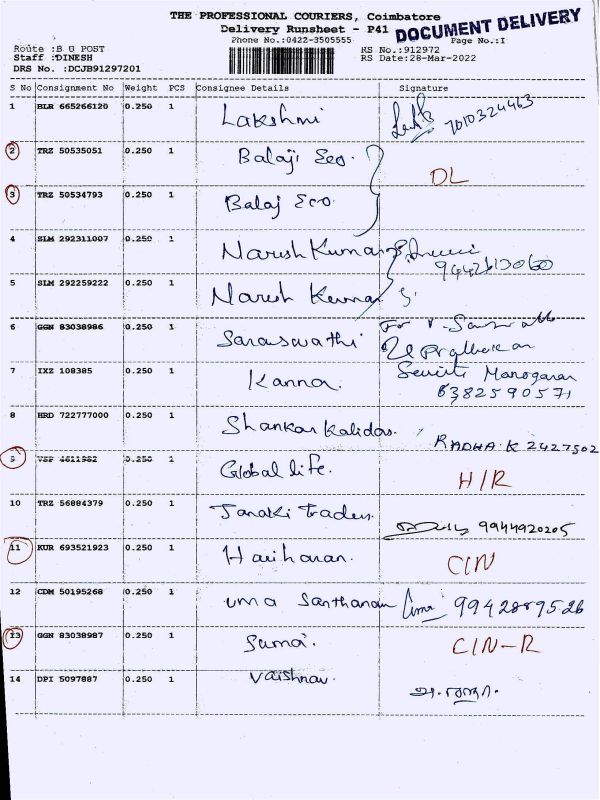 THE PROFESSIONAL COURIERS, Coimbatore
Delivery Runsheet - P41
DOCUMENT DELIVERY
Phone No.:0422-3505555 Page No.:I
Route :B U POST RS No.:912972
Staff :DINESH RS Date:28-Mar-2022
DRS No. :DCJB91297201
S No Consignment No Weight PCS Consignee Details Signature
1 BLR 665266120 0.250 1 Lakshmi 7010324463
2 TRZ 50535051 0.250 1 Balaji Eco. DL
3 TRZ 50534793 0.250 1 Balaj Eco
4 SLM 292311007 0.250 1 Naresh Kumar
5 SLM 292259222 0.250 1 Naresh Kumar S.
6 GGN 83038986 0.250 1 Saraswathi For
7 IXZ 108385 0.250 1 Kanna. Manogaran
6382590571
8 HRD 722777000 0.250 1 Shankar Kalidas. RADHA.K 2427502
9 VSP 4611982 0.250 1 Global life. H/R
10 TRZ 56884379 0.250 1 Janaki Traders. 9944920205
11 KUR 693521923 0.250 1 Hariharan. C/N
12 CDM 50195268 0.250 1 uma Santhanam Uma 9942889526
13 GGN 83038987 0.250 1 Suma. C/N-R
14 DPI 5097887 0.250 1 Vaishnav.